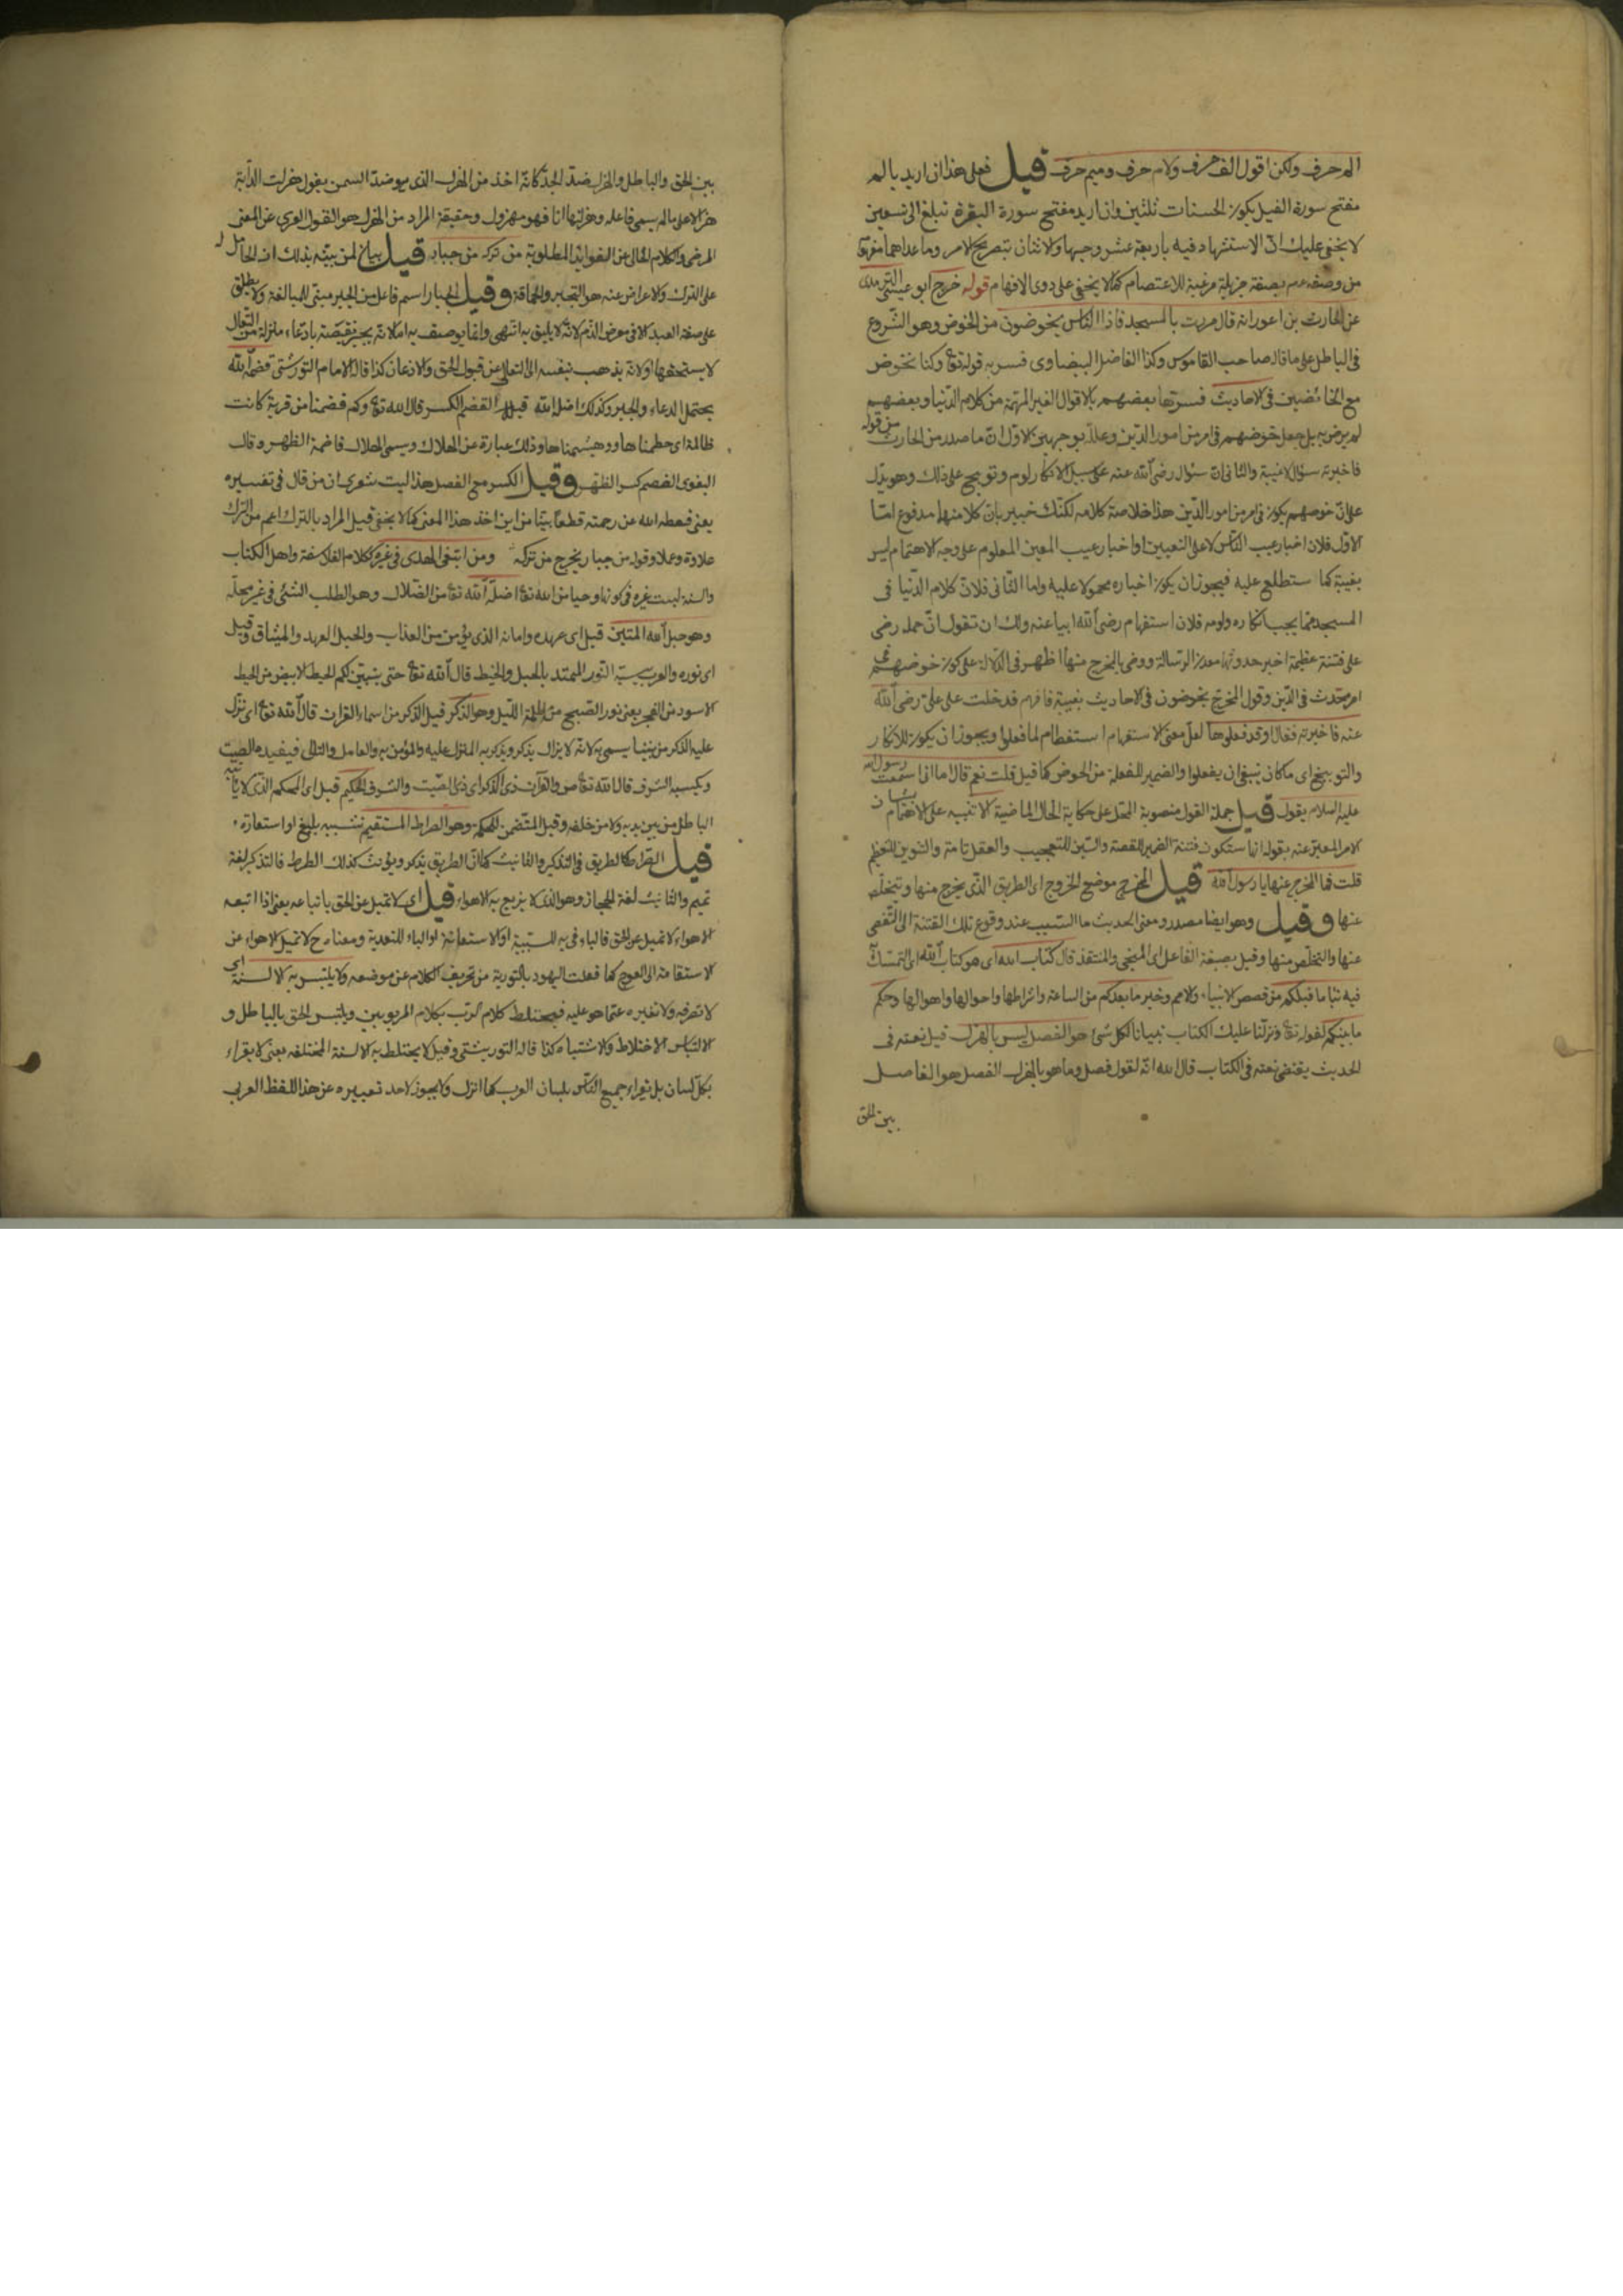 الم حرف ولكن اقول الف حرف ولام حرف وميم حرف قيل فعلى هذا ان اريد بالم
مفتح سورة الفيل يكون الحسنات ثلثين وان اريد مفتح سورة البقرة تبلغ الى تسعين
لا يخفى عليك انّ الاستشهاد فيه باربعة عشر وجها ولاثنان بتصريح الامر وما عداهما
من وصفه بصفة جزيلة مرغبة للاعتصام كما لا يخفى على ذوى الافهام قوله خرج ابو عيسى الترمذى
عن الحارث بن اعور انه قال مررت بالمسجد فاذا الناس يخوضون من الخوض وهو الشّروع
فى الباطل على ما قال صاحب القاموس وكذا الفاضل البيضاوى فسر به قوله تع وكنا نخوض
مع الخائضين فى الاحاديث فسرها بعضهم بالاقوال الغير المهمّة من كلام الدّنيا وبعضهم
لم يرض به بل جعل خوضهم فى امر من امور الدّين وعلّله بوجهين الاوّل انّ ما صدر من الحارث من قوله
فاخبرته سؤال لا غيبة والثانى انّ سؤال رضى الله عنه على سبيل الانكار لوم وتوبيخ على ذلك وهو يدلّ
على انّ خوضهم يكون فى امر من امور الدّين هذا خلاصة كلامه لكنّك خبير بانّ كلا منهما مدفوع امّا
الاوّل فلان اخبار عيب النّاس لا على التعيين او اخبار عيب المعين المعلوم على وجه الاهتمام ليس
بغيبة كما ستطلع عليه فيجوز ان يكون اخباره محمولا عليه واما الثّانى فلانّ كلام الدّنيا فى
المسجد مما يجب انكاره ولومه فلان استفهام رضى الله ابيا عنه ولك ان تقول انّ حمله رضى
على فتنة عظيمة اخبر حدوثها معدن الرسالة ووضى بالمخرج منها اظهر فى الدّلالة على كون خوضهم فى
امر يحدث فى الدّين وقول المخرج يخوضون فى الاحاديث بغيبة فافهم فدخلت على علىّ رضى الله
عنه فاخبرته فقال اوقد فعلوها لعلّ معنى الاستفهام استعظام لما فعلوا ويجوز ان يكون للانكار
والتوبيخ اى ما كان ينبغى ان يفعلوا والضمير للفعلة من الخوض كما قيل قلت نعم قال اما انى سمعت رسول الله
عليه السلام يقول قيل جملة القول منصوبة المحل على حكاية الحال الماضية الا تنبيه على الاهتمام بشان
الامر المعبّر عنه بقوله انها ستكون فتنة الضمير للقصة والسّين للتعجيب والعقل تامة والتنوين للتعظيم
قلت فما المخرج عنها يا رسول الله قيل المخرج موضع الخروج اى الطريق الّذى يخرج منها ويتخلّص
عنها وقيل وهو ايضا مصدر ومعنى الحديث ما السّبب عند وقوع تلك الفتنة الى التّفصى
عنها والتخلّص منها وقيل بصيغة الفاعل اى المنجى والمنقذ قال كتاب الله اى هو كتاب الله اى التمسّك
فيه نبأ ما قبلكم من قصص الانبياء والامم وخبر ما بعدكم من الساعة واشراطها واحوالها واهوالها وحكم
ما بينكم لقوله تع ونزلنا عليك الكتاب تبيانا لكل شئ هو الفصل ليس بالهزل قيل نعته فى
الحديث يقتضى نعته فى الكتاب قال الله انّه لقول فصل وما هو بالهزل الفصل هو الفاصل
بين الحق
بين الحق والباطل والهزل ضدّ الجدّ كانّه اخذ من الهزل الذى هو ضدّ السمن يقول هزلت الدّابة
هزلا على ما لم يسمى فاعله وهزلتها انا فهو مهزول وحقيقة المراد من الهزل هو القول العرى عن المعنى
المرضى والكلام الخالى عن الفوايد المطلوبة من تركه من جبار قيل بيان لمن بيّنه بذلك ان الحامل له
على الترك والاعراض عنه هو التجبر والحماقة وقيل الجبار اسم فاعل من الجبر مبنىّ للمبالغة ولا يطلق
على صفة العبد الا فى معرض الذّم لانّه لا يليق به انتهى وانما يوصف به امّا لانّه يجبر نقيصته بادّعاء منزلة من التعالى
لا يستحقها او لانّه يذهب بنفسه الى التعالى عن قبول الحق والاذعان كذا قاله الامام التوربشتى قصمه الله
يحتمل الدعاء والخبر وكذلك اضلّه الله قيل القصم الكسر قال الله تع وكم قصمنا من قرية كانت
ظالمة اى حطمناها وهشمناها وذلك عبارة عن الهلاك ويسمى الهلاك قاصمة الظهر وقال
البغوى القصم كسر الظّهر وقيل الكسر مع الفصل هذا ليت شعرى ان من قال فى تفسيره
يعنى قطعه الله عن رحمته قطعا بيّنا من اين اخذ هذا المعنى كما لا يخفى قيل المراد بالترك اعم من الترك
علاوة وعملا وقوله من جبار يخرج من تركه ومن ابتغى الهدى فى غيره ككلام الفلاسفة واهل الكتاب
والسنة ليست غيره فى كونها وحيا من الله تع اضلّه الله تع من الضّلال وهو الطلب الشئ فى غير محلّه
وهو حبل الله المتين قيل اى عهده وامانه الذى يؤمن من العذاب والحبل العهد والميثاق وقيل
اى نوره والعرب يشبّه النّور الممتد بالحبل والخيط قال الله تع حتى يتبيّن لكم الخيط الابيض من الخيط
الاسود من الفجر يعنى نور الصّبح من ظلمة اللّيل وهو الذكر قيل الذكر من اسماء القران قال الله تع اى نزّل
عليه الذكر من بيننا يسمى به لانّه لا يزال يذكر ويذكر به المنزل عليه والمؤمن به والعامل والتالى فيفيدهم الصيت
ويكسبه الشرف قال الله تع ص والقرآن ذى الذكر اى ذى الصّيت والشرف الحكيم قيل اى المحكم الّذى لا يأتيه
الباطل من بين يديه ولا من خلفه وقيل المتضمن للحكمة وهو الصراط المستقيم تشبيه بليغ او استعارة
قيل الصّراط كالطريق فى التذكير والتانيث كما انّ الطريق يذكر ويؤنث كذلك الصراط فالتذكير لغة
تميم والتانيث لغة الحجاز وهو الذى لا يزيغ به الاهواء قيل اى لا تميل عن الحق باتباعه يعنى اذا اتبعه
الاهواء لا تميل عن الحق فالباء فى به للسّببيّة او الاستعانة او الباء للتعدية ومعناه ح لا تميل الاهواء عن
الاستقامة الى العوج كما فعلت اليهود بالتورية من تحريف الكلام عن موضعه ولا يلتبس به الالسنة اى
لا تصرفه ولا تغيره عمّا هو عليه فيختلط كلام الرّب بكلام المربوبين ويلتبس الحق بالباطل و
الالتباس الاختلاط والاشتباه كذا قاله التوربشتى وقيل لا يختلط به الالسنة المختلفة يعنى لا يقراء
بكلّ لسان بل يقراء جميع النّاس بلسان العرب كما انزل ولا يجوز لاحد تعبيره عن هذا اللفظ العربى